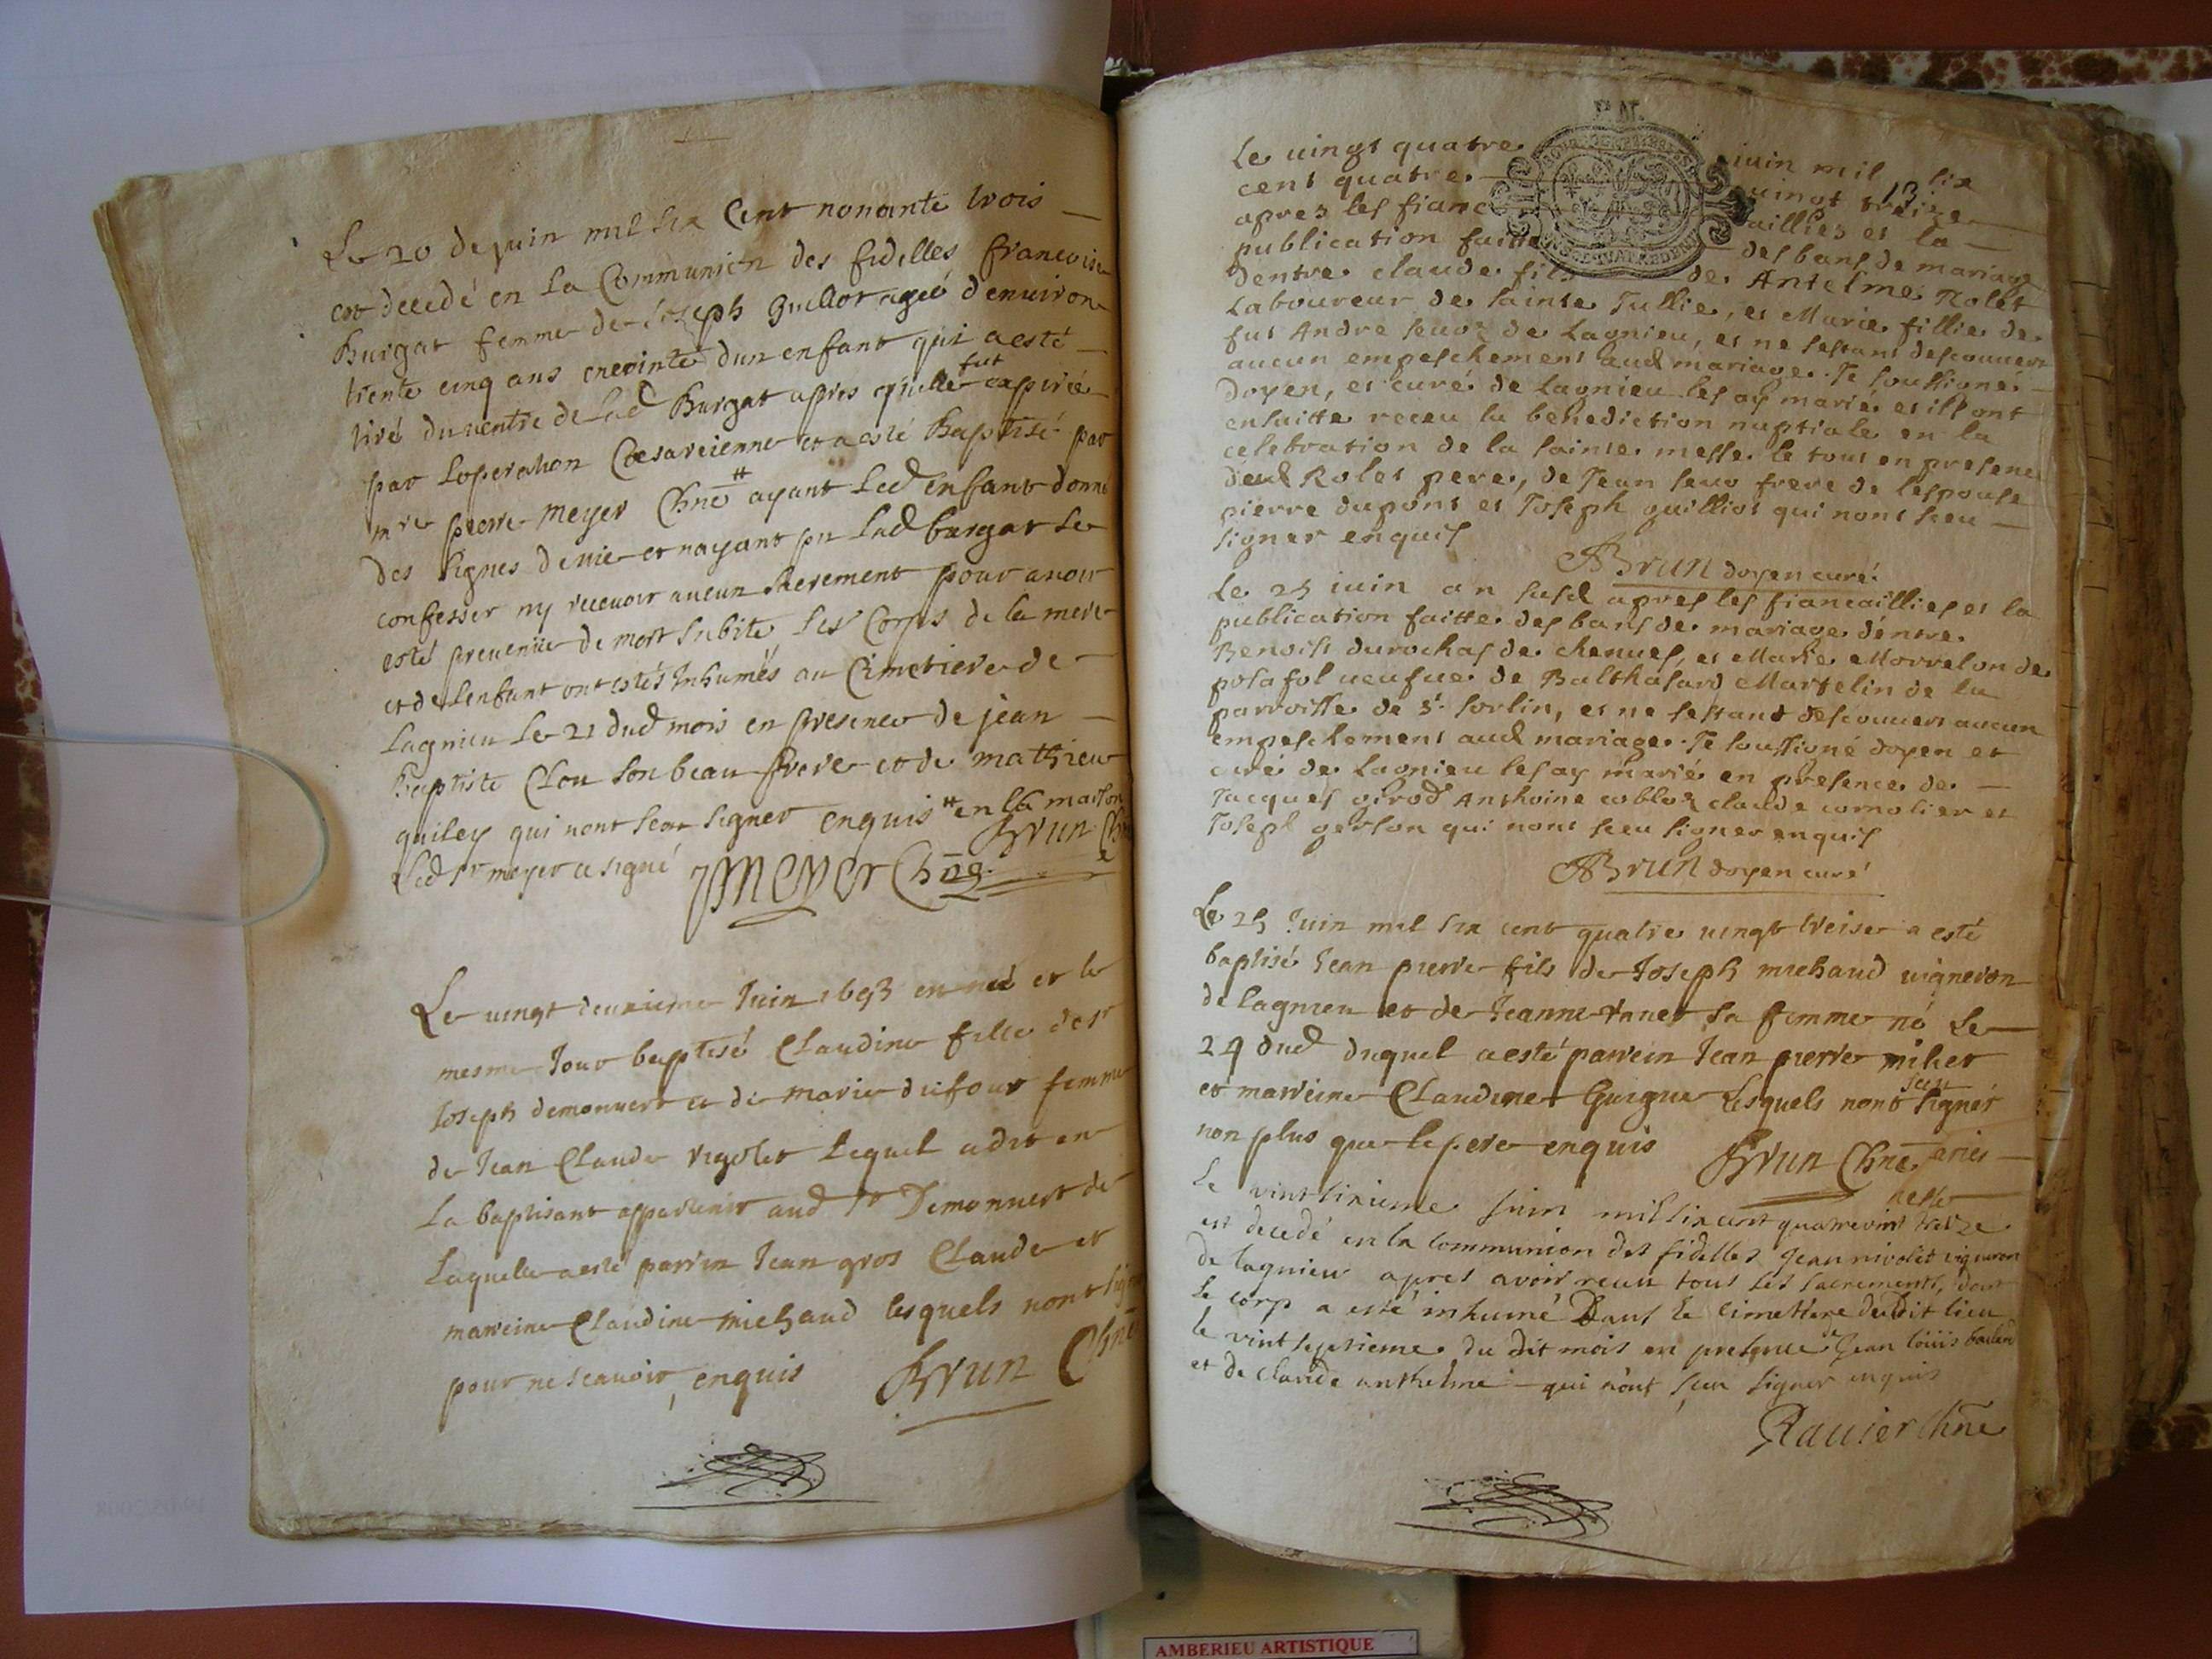 Le 20 de juin mil six Cent nonante trois
est decedé en la Communion des fidelles francoise
Burgat femme de Joseph Guillot agée d'environ
trente cinq ans enceinte dun enfant qui a esté
tiré du ventre de lad Burgat apres quelle fut expirée
par loperation Cœsareienne et a esté Baptisé par
mre pierre meyer Chne # ayant led enfant donné
des signes de vie et nayant pu lad burgat se
confesser ny recevoir aucun sacrement pour avoir
esté prevenüe de mort subite les Corps de la mere
et de lenfant ont estés Inhumés au Cimetiere de
Lagnieu le 21 dud mois en presence de jean
Baptiste Clou son beau frere et de mathieu
quiley qui nont sceu signer enquis # en la maison
Led Sr meyer a signé Brun Chne
Meyer Chne
Le vingt deuxieme Juin 1693 est née et le
mesme Jour baptisé Claudine fille de Sr
Joseph demonvert et de marie dufour femme
de Jean Claude rigolet lequel a dit en
la baptisant appartenir aud Sr Demonvert de
laquelle a esté parrin Jean gros Claude et
marreine Claudine michaud lesquels nont signé
pour ne scavoir enquis Brun Chne
Le vingt quatre juin mil six
cent quatre vingt treize
apres les fiancailliés et la
publication faitte des bans de mariage
dentre claude fils de Antelme Rolet
Laboureur de sainte Jullie, et Marie fillie de
fut Andre seuoz de Lagnieu, et ne sestant descouvert
aucun empeschement aud mariage. Je soussigné
doyen, et curé de Lagnieu les ay marié et ill ont
ensuitte receu la benediction nuptiale en la
celebration de la sainte messe le tout en presence
dud Rolet pere, de Jean seuo frere de lespouse
pierre dupont et Joseph guilliot qui nont sceu
signer enquis
ABrun doyen curé
Le 25 iuin an susd apres les fiancaillies et la
publication faitte des bans de mariage dentre
Benoist durochas de chenues, et Marie Morrelon de
posafol veufue de Balthasard Martelin de la
parroisse de St sorlin, et ne sestant descouvert aucun
empeschement aud mariage. Je soussigné doyen et
curé de Lagnieu les ay marié en presence de
Jacques girod Anthoine cobloz claude comolier et
Joseph gerson qui nont sceu signer enquis
ABrun doyen curé
Le 25 Juin mil six cent quatre vingt treise a esté
baptisé Jean pierre fils de Joseph michaud vigneron
de lagnieu et de Jeanne tanet sa femme né le
24 dud duquel a esté parrein Jean pierre milier
et marreine Claudine Guigue lesquels nont sceu signer
non plus que le pere enquis Brun Chne
Le vintsixieme Juin mil six cent quatrevint treize
est decedé en la communion des fidelles Jean nivolet vigneron
de lagnieu apres avoir receu tous les sacrements, dont
le corp a esté inhumé Dans le cimettiere dudit lieu
le vintseptieme du dit mois en presence Jean louis
et de claude anthelme qui n'ont sceu signer enquis
Ravier Chne
AMBERIEU ARTISTIQUE